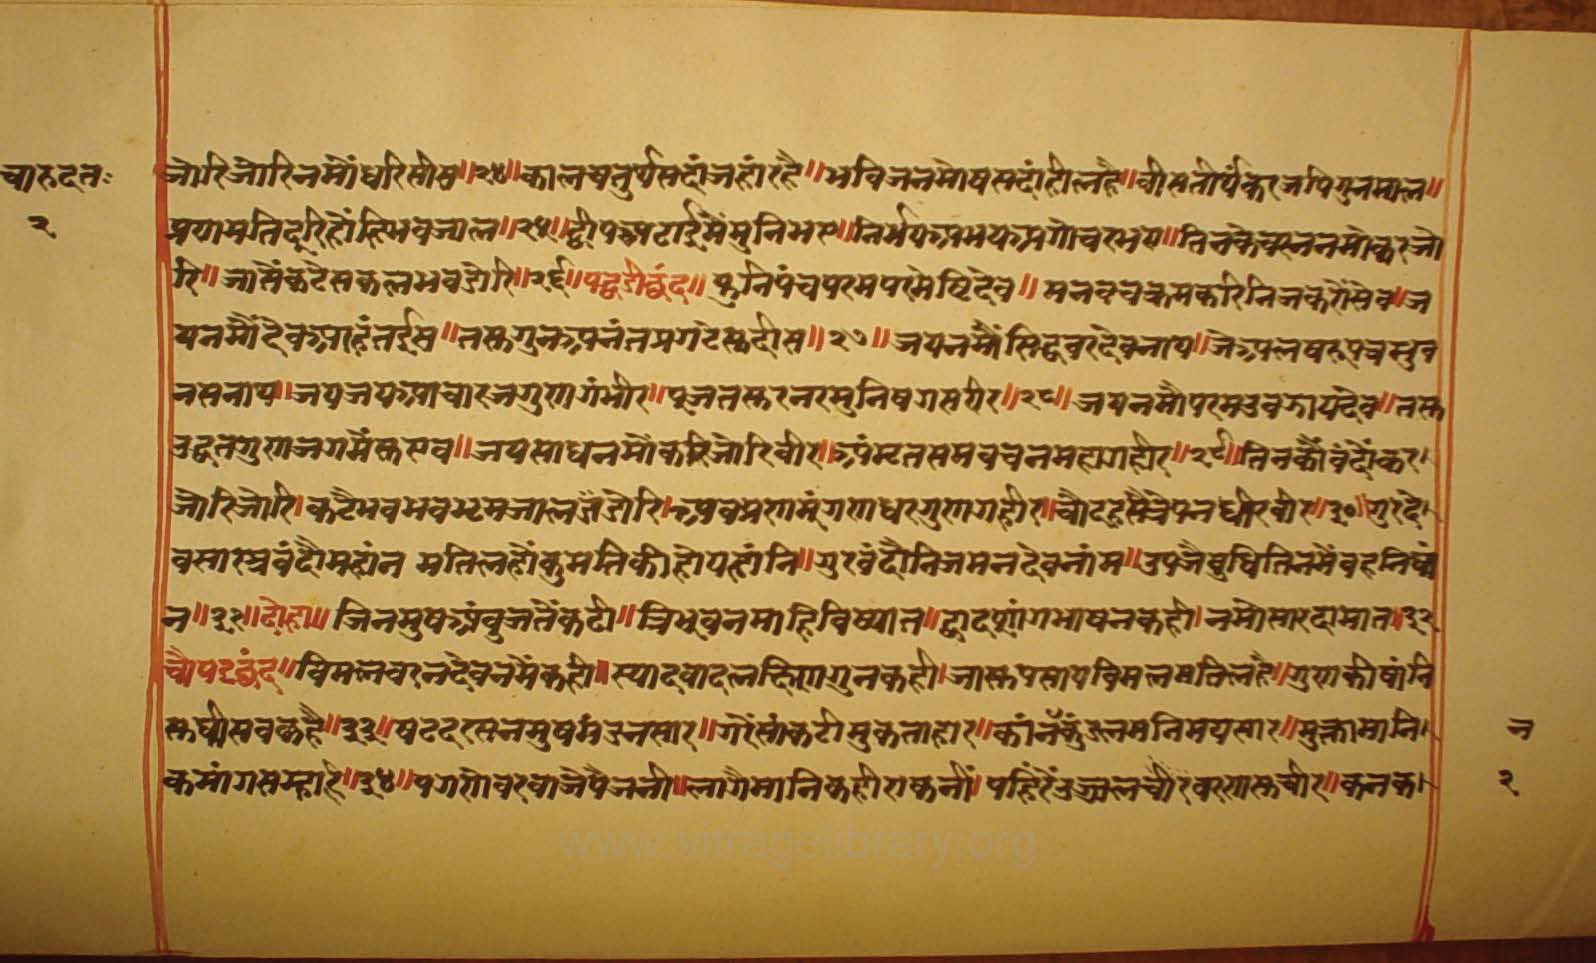 चारुदत्तः
२
जोरिजोरिनमौंधरिसीस॥२४॥कालचतुर्थसदांजहांरहै॥भविजनमोषसदांहीलहै॥वीसतीर्थंकरजपिगुनमाल॥
प्रणमतिदूरिहोंहिभवजाल॥२५॥द्वीपअढाईमैंमुनिभए॥निर्भयअभयअगोचरभए॥तिनकेचरननमोकरजो
रि॥जासैंकटैसकलभवडोरि॥२६॥पद्धडीछंद॥फुनिपंचपरमपरमेष्टिदेव॥मनवचक्रमकरिनिजकरौंसेव॥ज
यनमौंदेवअरहंतईस॥तसगुनअनंतप्रगटेसुदीस॥२७॥जयनमौंसिद्धवरदेवनाथ॥जेअलषरूपत्रिभुव
नसनाथ॥जयजयआचारजगुणगंभीर॥पूजतसुरनरमुनिषगसधीर॥२८॥जयनमौपरमउवझायदेव॥तसु
उद्धतगुणजगमैंसुएव॥जयसाधनमौकरजोरिवीर॥अंमृतसमवचनमहागहीर॥२९॥तिनकौंवंदौंकर
जोरिजोरि।कटैभवभवभ्रमजाल डोरि।अवप्रणमूंगणधरगुणगहीर॥चौदहसैत्रेपनधीरवीर॥३०॥गुरदे
वसास्त्रवंदौमहांन मतिलहौंकुमतिकीहोयहांनि॥गुरवंदौनिजमनदेवनांम॥उपजैबुधितिनमैंवहनिधां
न॥३१॥दोहा॥जिनमुषअंवुजतैंकढी॥त्रिभुवनमाहिविष्यात॥द्वादशांगभाषनकही।नमोसारदामात॥३२
चौपईछंद॥विमलचरनदेवनमैंकही॥स्यादवादलक्षिणगुनकही।जासुप्रसायविमलमतिलहै॥गुणकीषांनि
सुधीसवकहै॥३३॥षटदरसनमुषमंडनसार॥गरैंसांकटीमुकताहार॥कांनौंकुंडलमनिमयसार॥मुक्तामानि
कमांगसम्हार॥३४॥पगरणेवरवाजेपैजनी॥लागैमानिकहीराकनीं॥पहिंरैंउज्जलचीरवरणसुचीर॥कनक
न
२
www.vitragelibrary.org